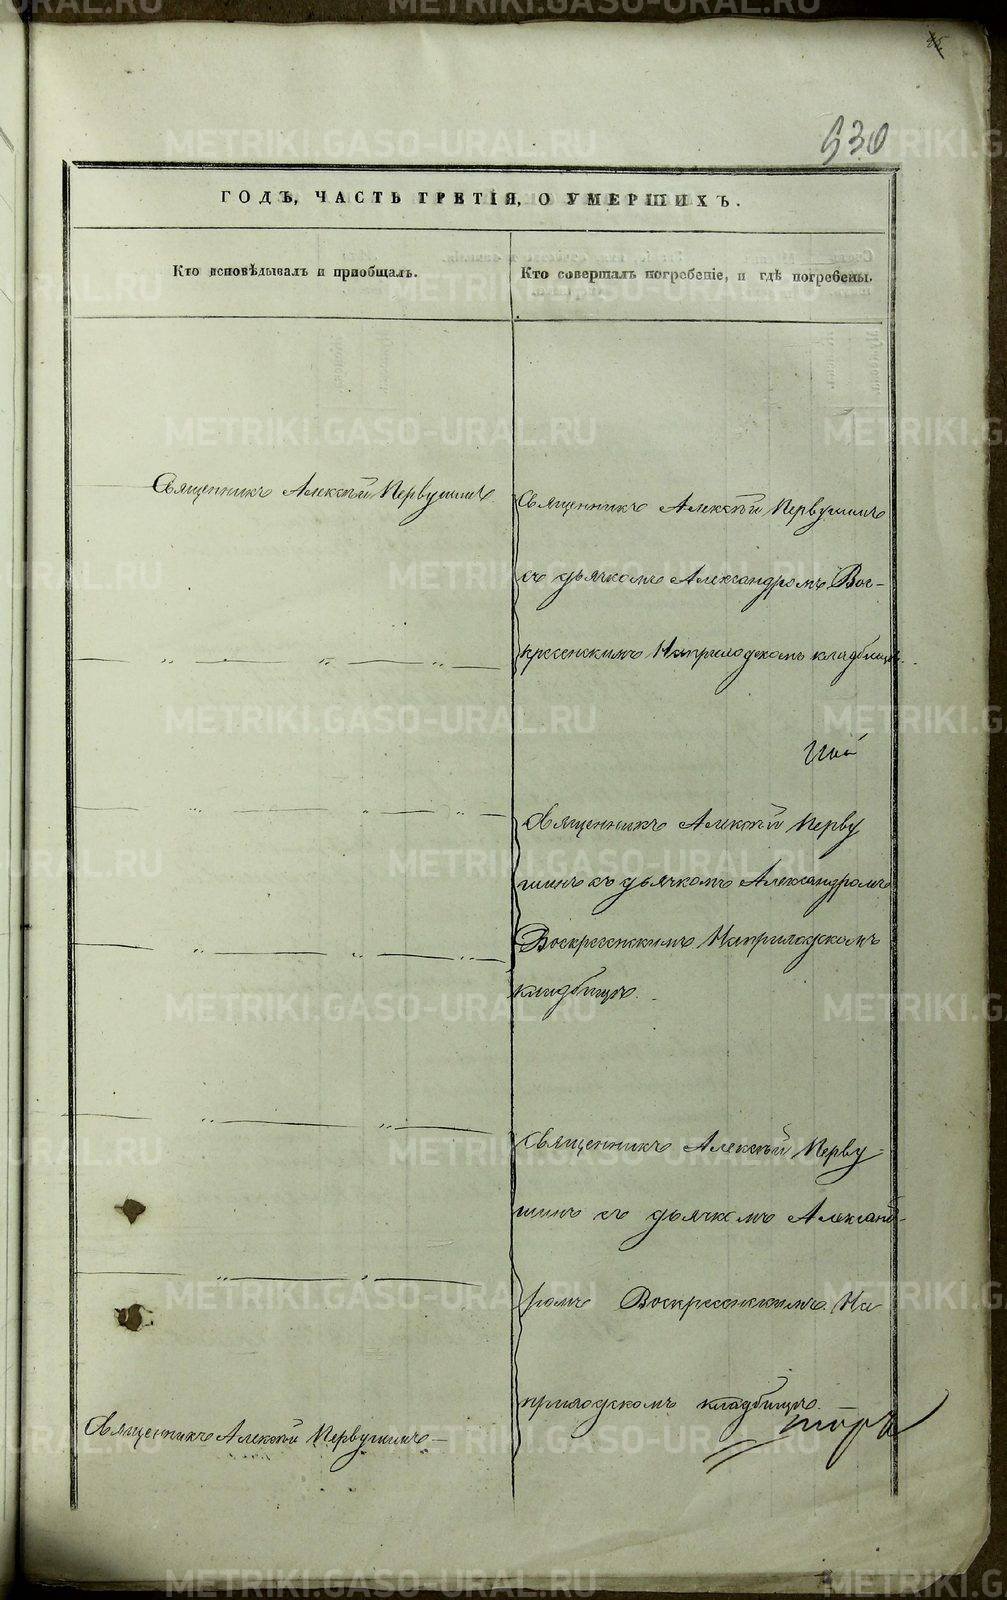 930
ГОДЪ, ЧАСТЬ ТРЕТІЯ, О УМЕРШИХЪ.
Кто исповѣдывалъ и пріобщалъ.
Кто совершалъ погребеніе, и гдѣ погребены.
Священникъ Алексѣй Первушинъ
Священникъ Алексѣй Первушинъ
съ дьячкомъ Александромъ Вос-
кресенскимъ На приходскомъ кладбищѣ.
Священникъ Алексѣй Перву
шинъ съ дьячкомъ Александромъ
Воскресенскимъ На приходскомъ
кладбищѣ.
Священникъ Алексѣй Перву-
шинъ съ дьячкомъ Александ-
ромъ Воскресенскимъ. На
приходскомъ кладбищѣ.
Священникъ Алексѣй Первушинъ
METRIKI.GASO-URAL.RU